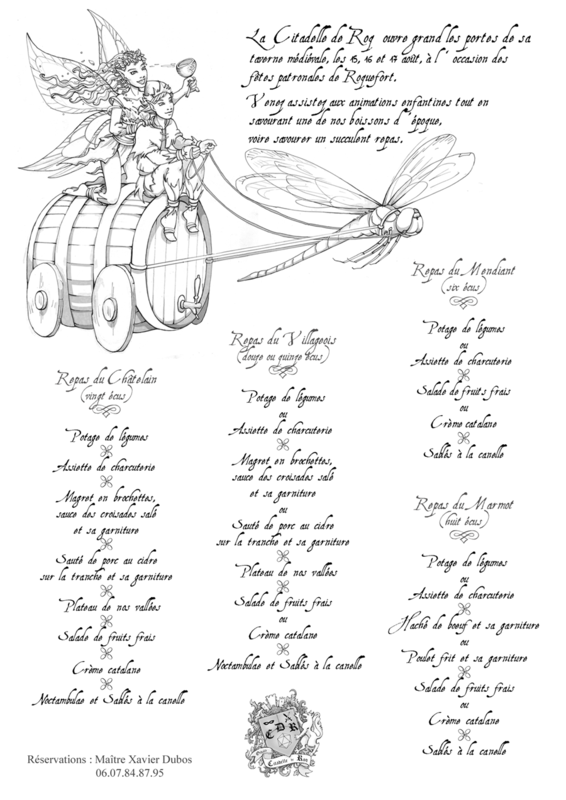 La Citadelle de Roq ouvre grand les portes de sa
taverne médiévale, les 15, 16 et 17 août, à l' occasion des
fêtes patronales de Roquefort.
Venez assistez aux animations enfantines tout en
savourant une de nos boissons d' époque,
voire savourer un succulent repas.
Repas du Mendiant
(six écus)
Potage de légumes
ou
Assiette de charcuterie
Salade de fruits frais
ou
Crème catalane
Sablés à la canelle
Repas du Villageois
(douze ou quinze écus)
Potage de légumes
ou
Assiette de charcuterie
Magret en brochettes,
sauce des croisades salé
et sa garniture
ou
Sauté de porc au cidre
sur la tranche et sa garniture
Plateau de nos vallées
Salade de fruits frais
ou
Crème catalane
Noctambulae et Sablés à la canelle
Repas du Châtelain
(vingt écus)
Potage de légumes
Assiette de charcuterie
Magret en brochettes,
sauce des croisades salé
et sa garniture
Sauté de porc au cidre
sur la tranche et sa garniture
Plateau de nos vallées
Salade de fruits frais
Crème catalane
Noctambulae et Sablés à la canelle
Repas du Marmot
(huit écus)
Potage de légumes
ou
Assiette de charcuterie
Haché de boeuf et sa garniture
ou
Poulet frit et sa garniture
Salade de fruits frais
ou
Crème catalane
Sablés à la canelle
CDR
Citadelle de Roq
Réservations : Maître Xavier Dubos
06.07.84.87.95